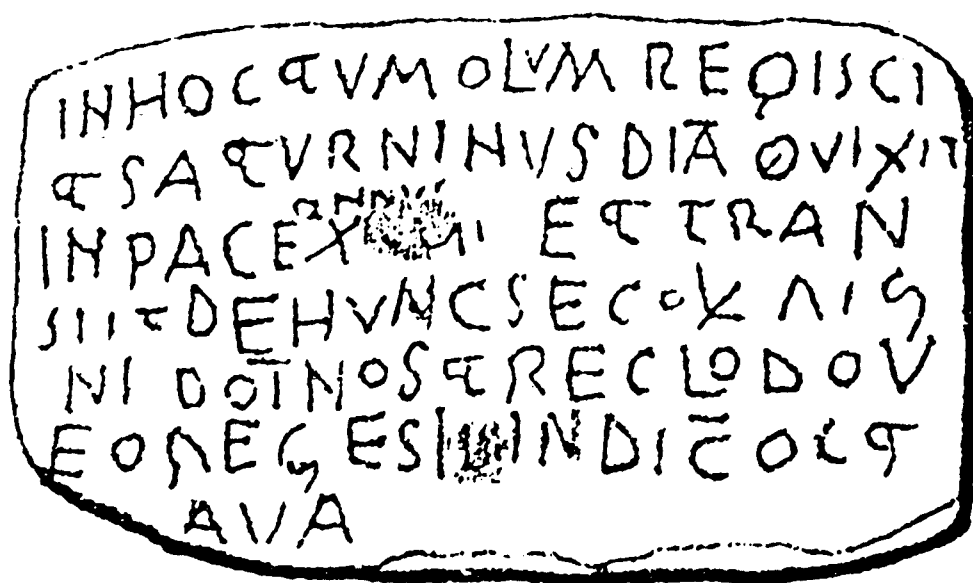 INHOC TVMOLVM REQISCI
T SATVRNINVS DIA QVIXIT
IN PACE ANN ET TRAN
SIIT DE HVNC SECOLV
NI DOINOSTRE CLODOV
EO REGES INDIC OCT
AVA